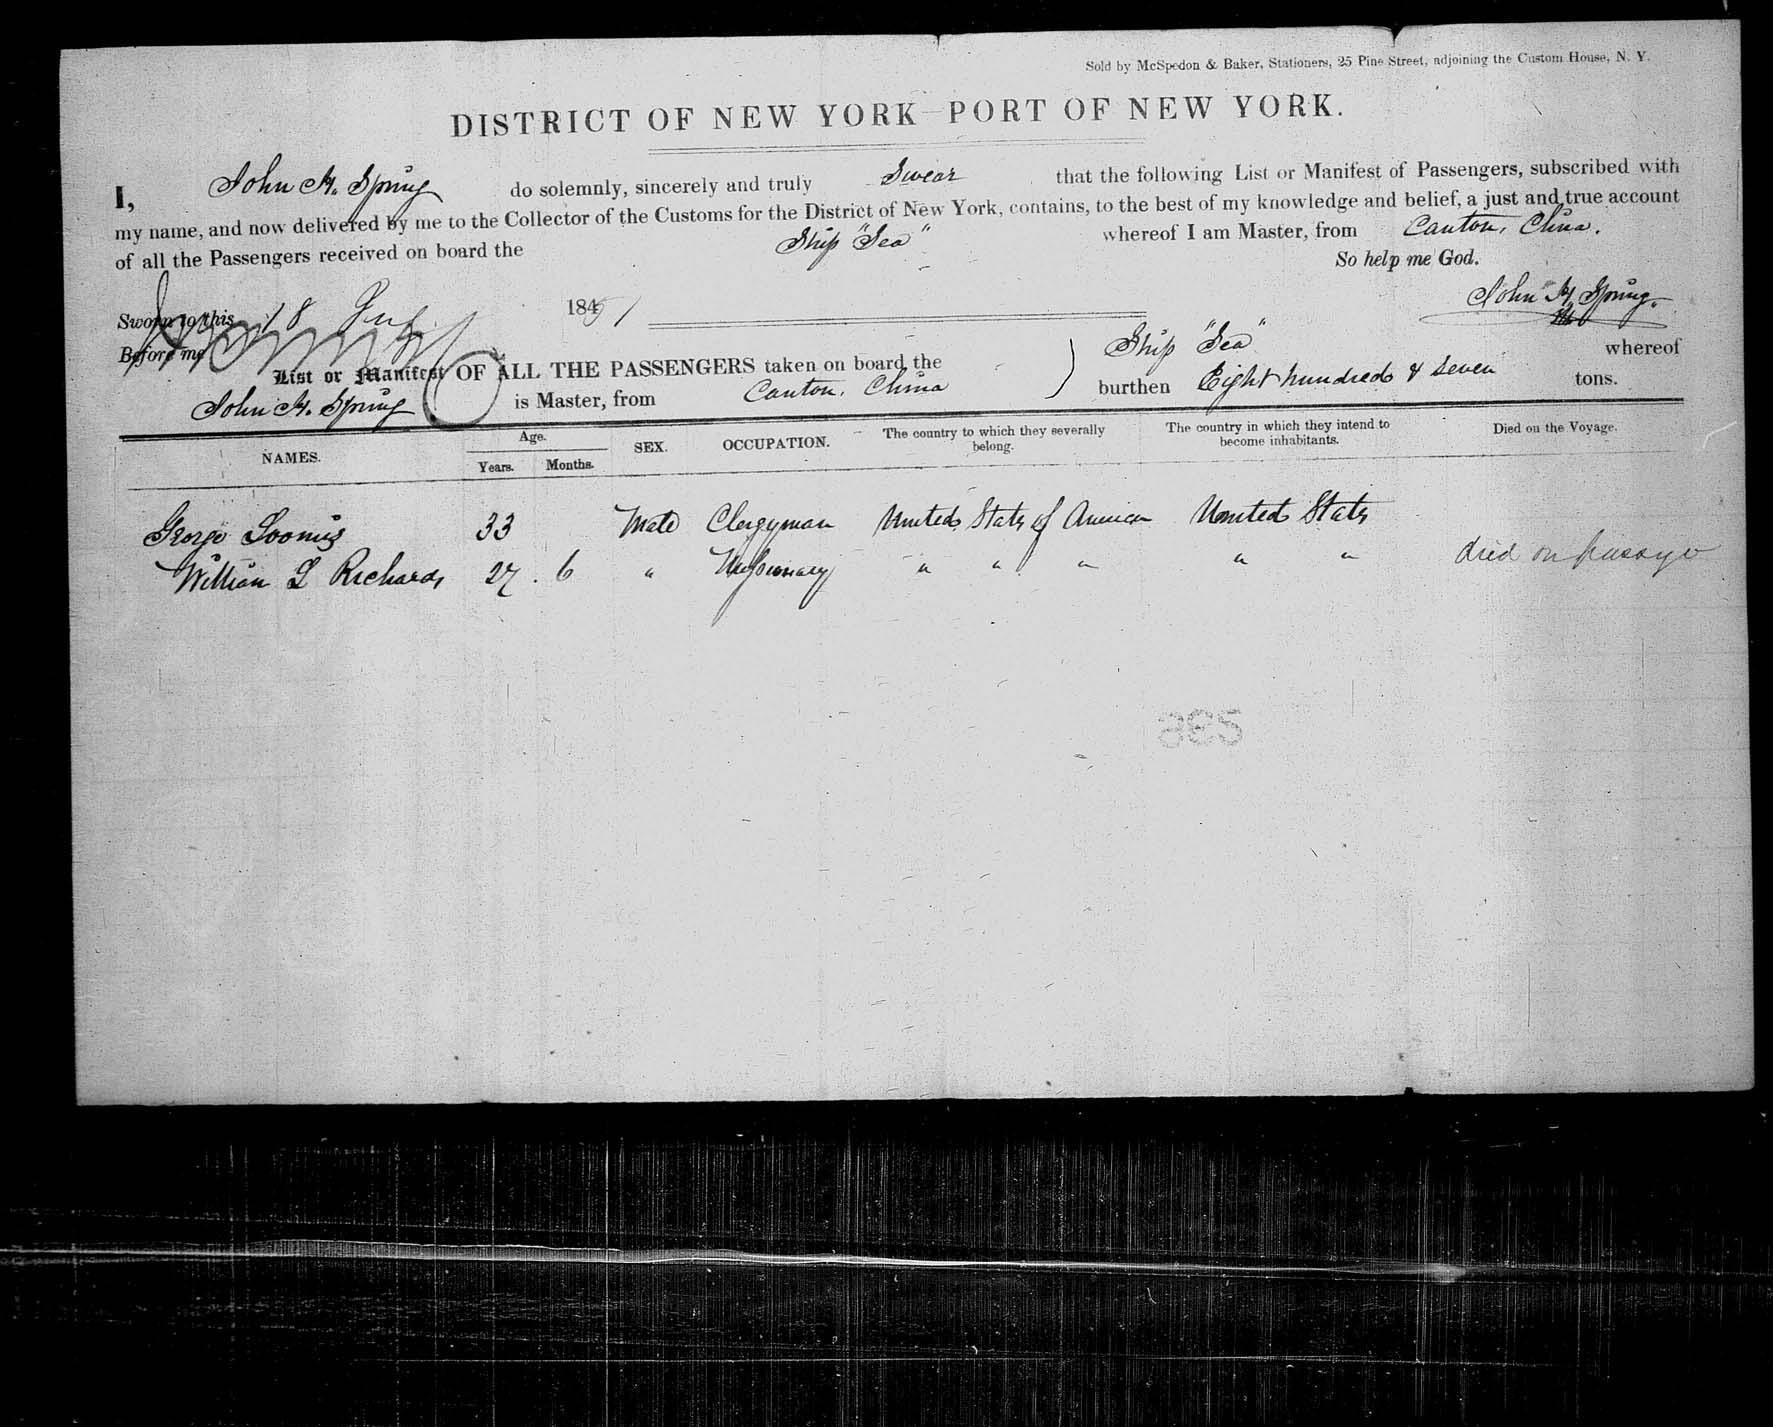 Sold by McSpedon & Baker, Stationers, 25 Pine Street, adjoining the Custom House, N. Y.
DISTRICT OF NEW YORK—PORT OF NEW YORK.
I, John H. Spring do solemnly, sincerely and truly Swear that the following List or Manifest of Passengers, subscribed with
my name, and now delivered by me to the Collector of the Customs for the District of New York, contains, to the best of my knowledge and belief, a just and true account
of all the Passengers received on board the Ship "Sea" whereof I am Master, from Canton, China.
So help me God.
Sworn to this 18 1851 John H. Spring.
Before me
List or Manifest OF ALL THE PASSENGERS taken on board the Ship "Sea" whereof
John H. Spring is Master, from Canton, China burthen Eight hundred & Seven tons.
NAMES. Age. Years. Months. SEX. OCCUPATION. The country to which they severally belong. The country in which they intend to become inhabitants. Died on the Voyage.
George Loomis 33 Male Clergyman United States of America United States
William L Richards 27. 6 " Missionary " " " " " died on passage
236